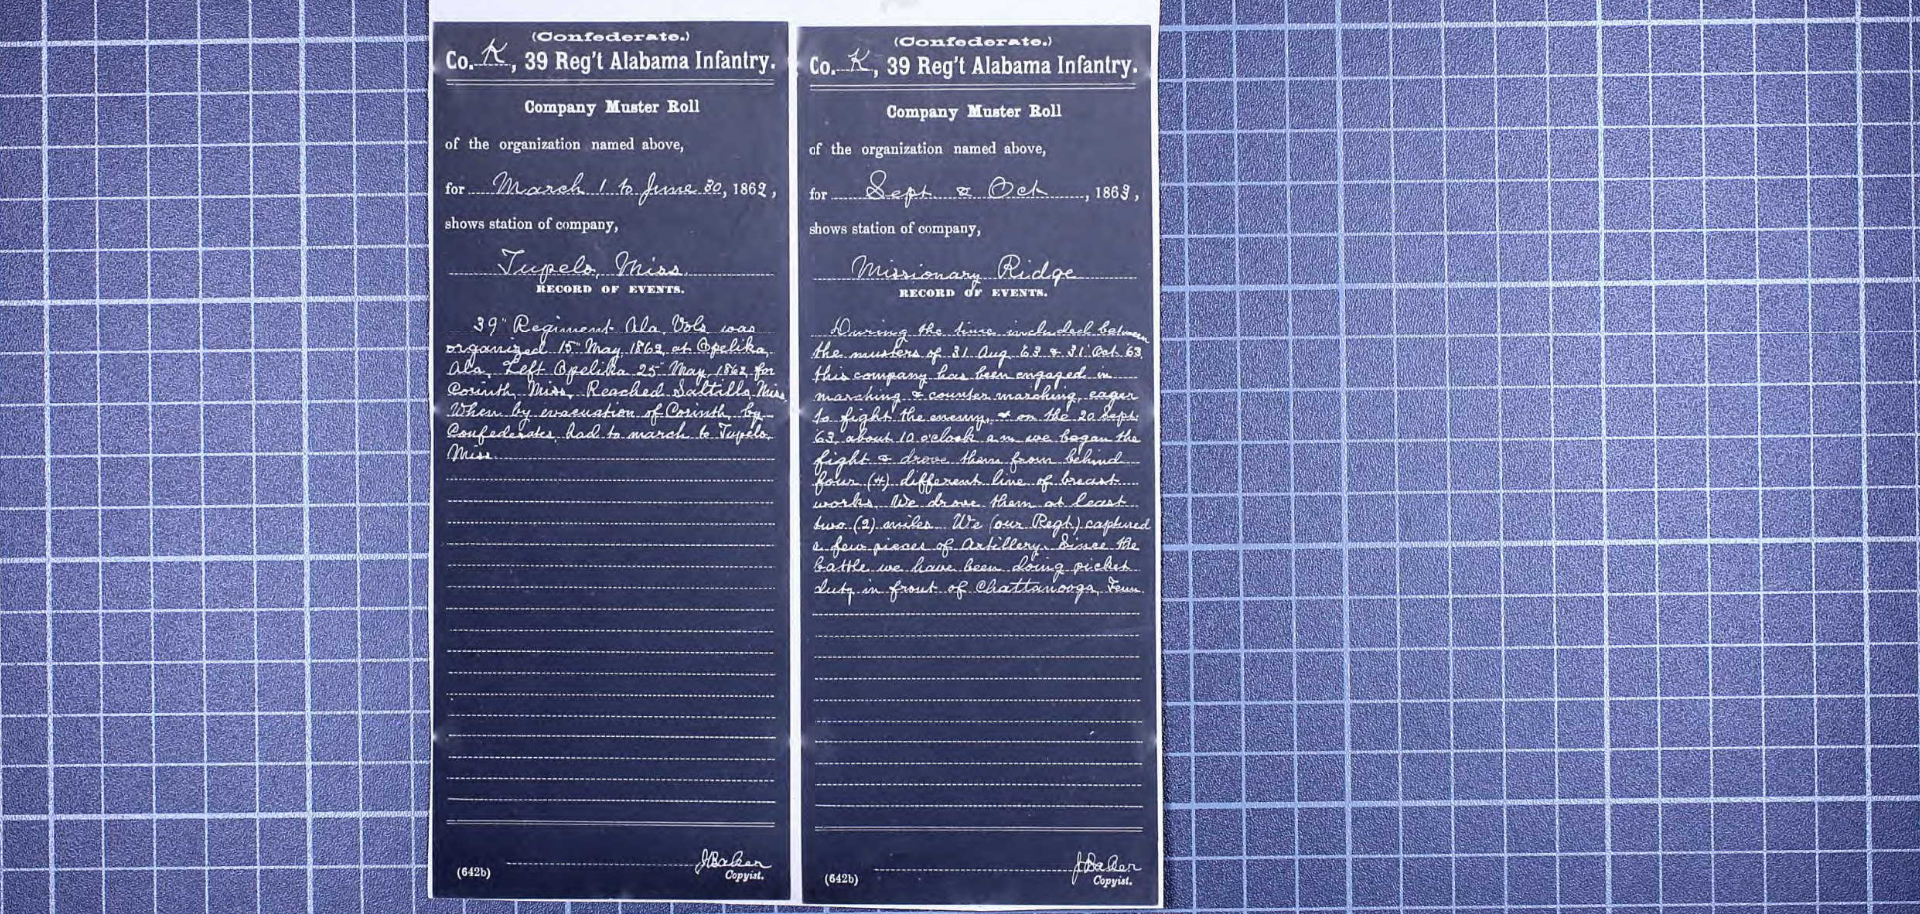 (Confederate.)
Co. K, 39 Reg't Alabama Infantry.
Company Muster Roll
of the organization named above,
for March 1 to June 30, 1862,
shows station of company,
Tupelo, Miss.
RECORD OF EVENTS.
39" Regiment Ala. Vols. was
organized 15" May 1862, at Opelika,
Ala. Left Opelika 25" May, 1862, for
Corinth, Miss. Reached Saltillo, Miss.
When by evacuation of Corinth, by
Confederates, had to march to Tupelo,
Miss.
(642b)
J Baker
Copyist.
(Confederate.)
Co. K, 39 Reg't Alabama Infantry.
Company Muster Roll
of the organization named above,
for Sept & Oct, 1863,
shows station of company,
Missionary Ridge
RECORD OF EVENTS.
During the time included between
the musters of 31 Aug '63 & 31 Oct '63,
this company has been engaged in
marching & counter marching, eager
to fight the enemy, & on the 20 Sept.
'63, about 10 o'clock a.m. we began the
fight & drove them from behind
four (4) different line of breast
works. We drove them at least
two (2) miles. We (our Regt.) captured
a few pieces of Artillery. Since the
battle we have been doing picket
duty in front of Chattanooga, Tenn.
(642b)
J Baker
Copyist.